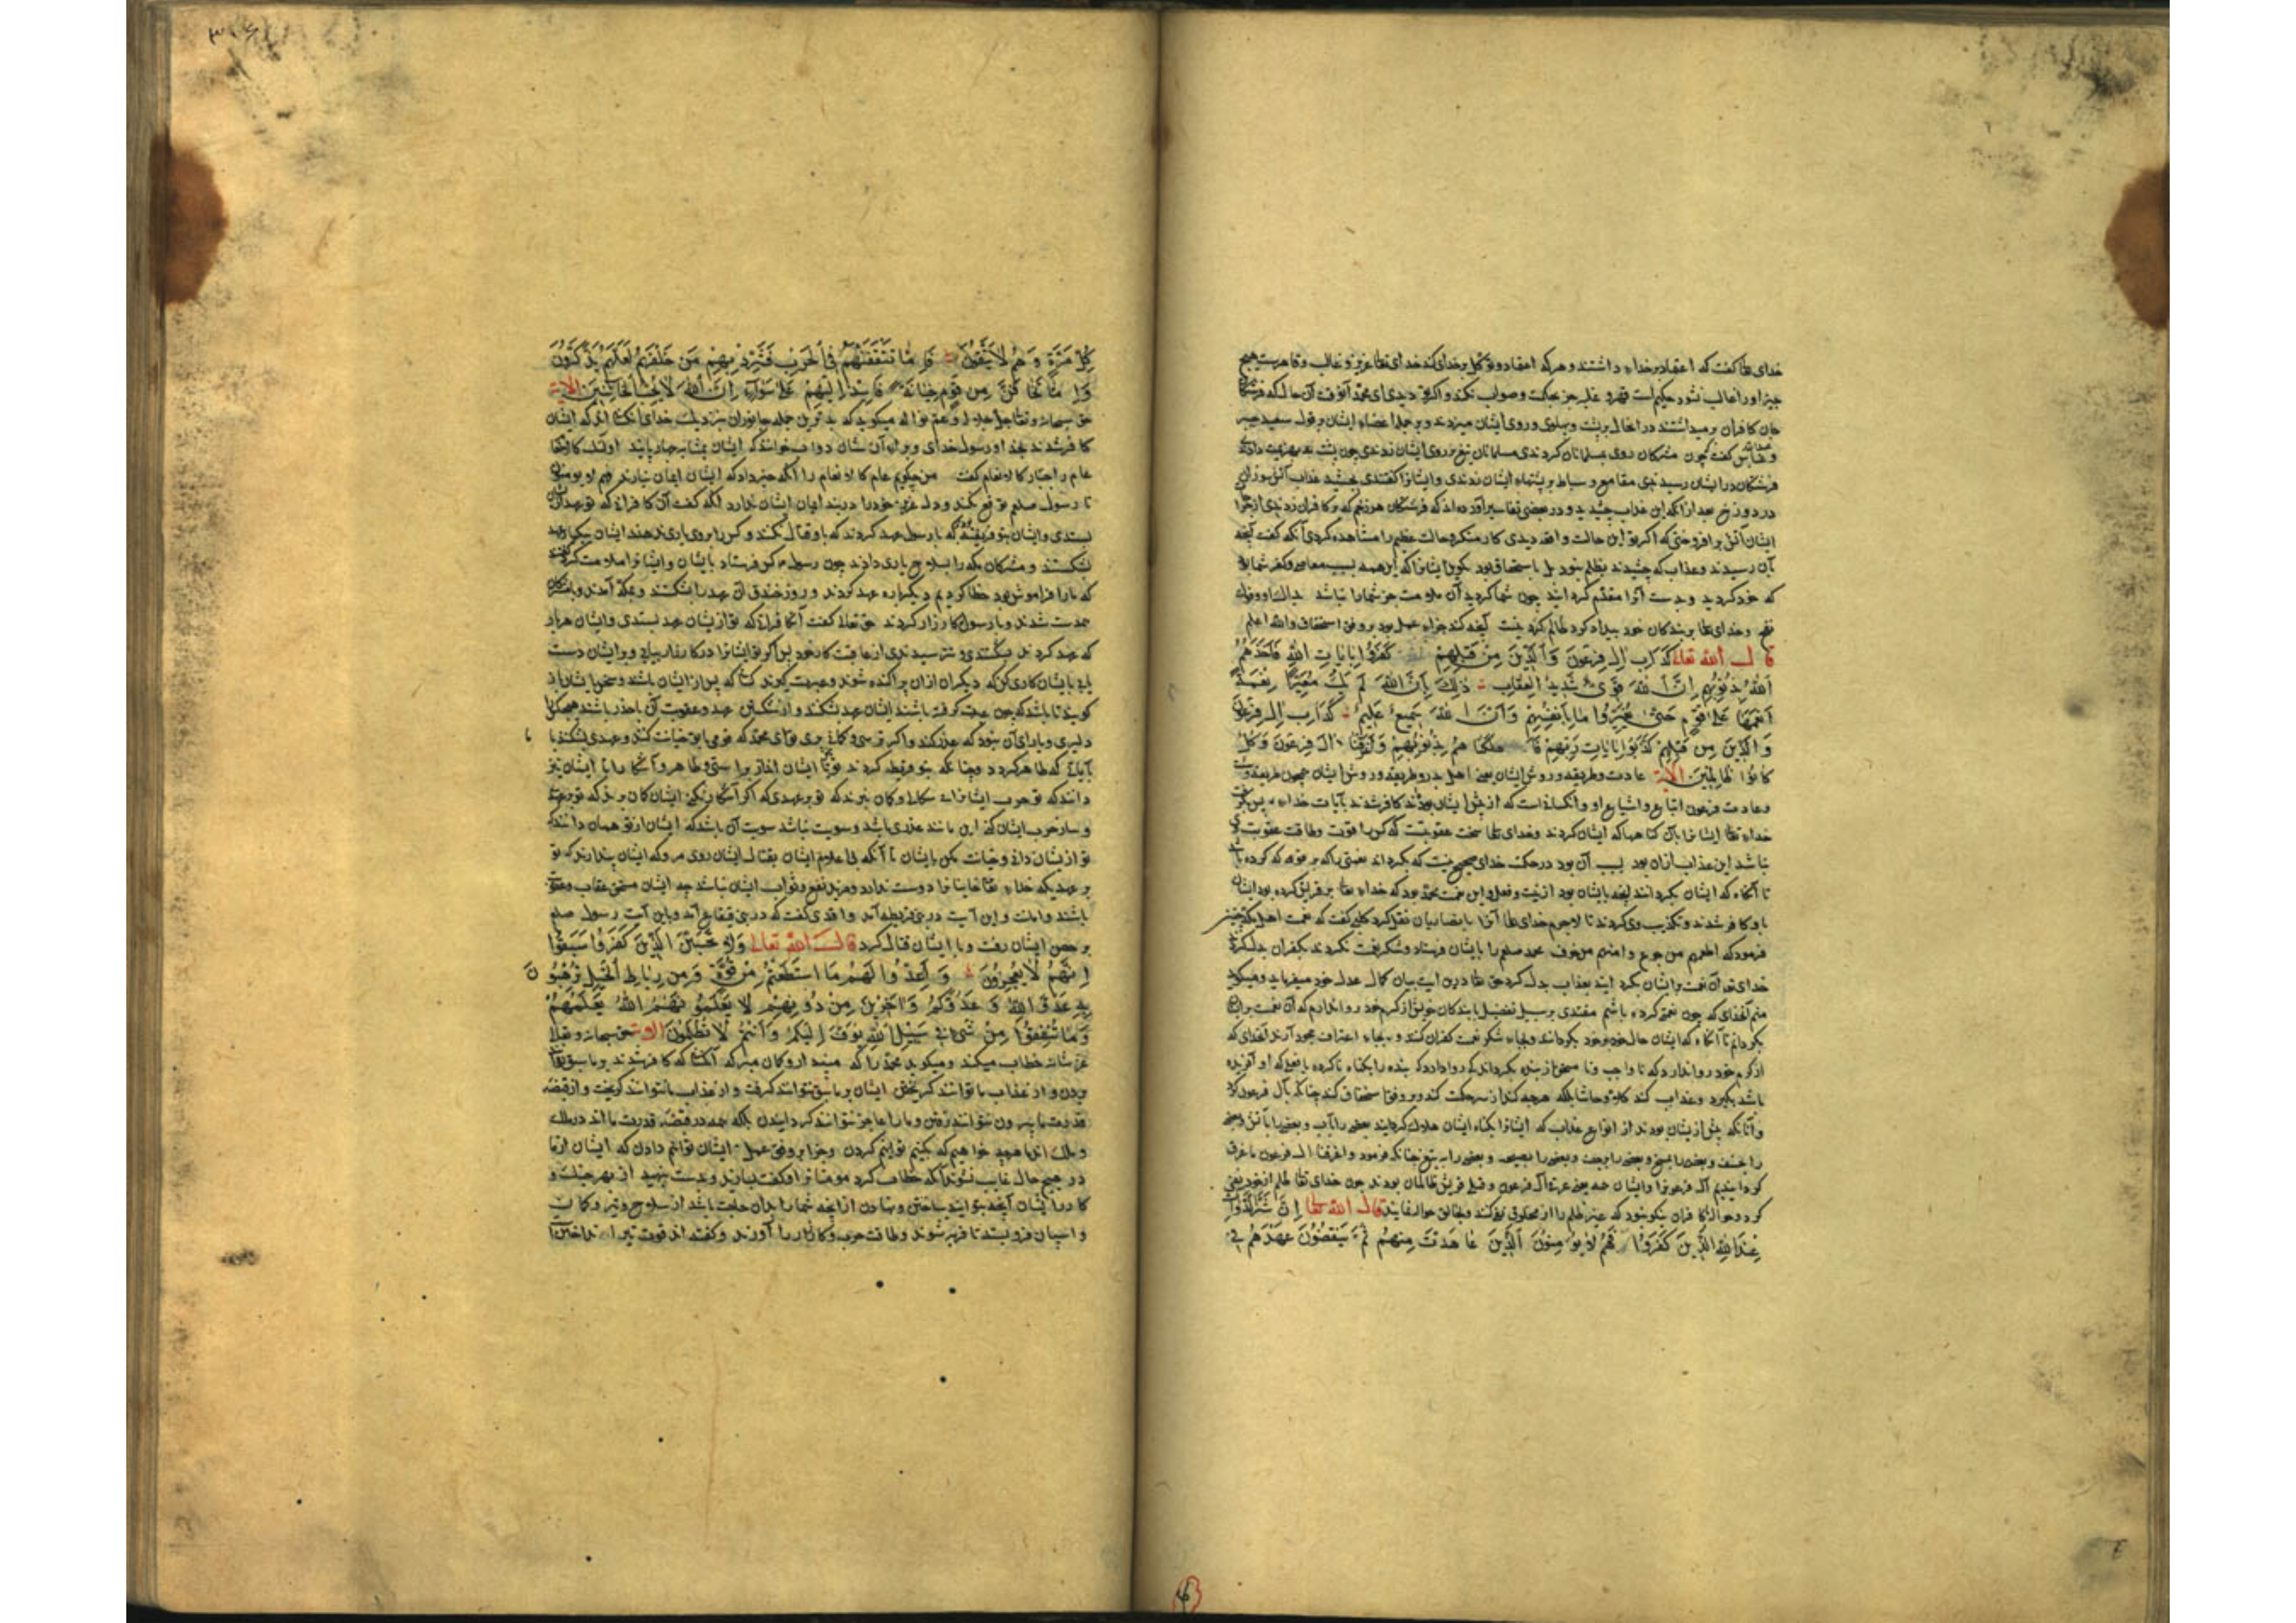 خدای تعا کفت که اعتقاد بر خداء داشتند و هر که اعتقاد و توکل بر خدای کند خدای تعا عزیز و غالب و قاهرست هیچ
چیز او را غالب نشود حکیم است قهر و غلبه جز بحکمت و صواب نکند و اکر تو دیدی ای محمد آنوقت آن حال که فرشتکان
جان کافران برمیداشتند در انحال بر پشت و پهلوی و روی ایشان میزدند و بر جمله اعضاء ایشان بر قول سعید جبیر
کفت چون مشرکان روی بمسلمانان کردندی مسلمانان تیغ بر روی ایشان زدندی چون پشت بهزیمت دادند
فرشتکان در ایشان رسیدندی مقامع و سیاط بر پشتهاء ایشان زدندی و ایشانرا کفتندی بچشید عذاب آتش سوزان
در دوزخ بعد از انکه این عذاب چشیدید و در بعضی تفاسیر آورده اند که فرشتکان هر زخم که بر کافران زدندی از جراحت
ایشان آتش برافروختی که اکر تو این حالت و واقعه دیدی کار منکر و حالت عظیم را مشاهده کردی آنکه کفت آنچه
بآن رسیدند و عذاب که چشیدند بظلم نبود بل باستحقاق بود بکوی ایشانرا که این همه بسبب معاصی و کفر شما بود
که خود کردید و بدست آنرا مقدم کرده اید چون شما کردید آن ملامت جز شما را نباشد
و خدای تعا بر بندکان خود بیداد کر و ظالم نیست آنچه کند جزاء عمل بود بر وفق استحقاق والله اعلم
قال الله تعالی کَدَأبِ الِ فِرعَونَ وَالَّذینَ مِن قَبلِهِم کَفَرُوا بِایاتِ اللهِ فَاَخَذَهُمُ
اللهُ بِذُنُوبِهِم اِنَّ اللهَ قَوِیٌّ شَدیدُ العِقابِ ذلِکَ بِاَنَّ اللهَ لَم یَکُ مُغَیِّراً نِعمَةً
اَنعَمَها عَلی قَومٍ حَتّی یُغَیِّروُا ما بِاَنفُسِهِم وَاَنَّ اللهَ سَمیعٌ عَلیمٌ کَدَأبِ الِ فِرعَونَ
وَالَّذینَ مِن قَبلِهِم کَذَّبُوا بِایاتِ رَبِّهِم فَاَهلَکناهُم بِذُنُوبِهِم وَاَغرَقنا الَ فِرعَونَ وَکُلٌّ
کانُوا ظالِمینَ الآیة عادت و طریقه و روش ایشان یعنی اهل بدر و طریقه و روش ایشان همچون طریقه
و عادت فرعون اتباع و اشیاع او و آنکسانی است که از پیش ایشان بودند کافر شدند بآیات خداء پس بکرفت
خداء تعا ایشانرا بآن کناهها که ایشان کردند و خدای تعا سخت عقوبتست که کس را قوت و طاقت عقوبت وی
نباشد این عذاب ایشان بود بسبب آن بود در حکمت خدای صحیح نیست که بکرداند نعمتی را که بر قومی که کرده باشد
تا آنکاه که ایشان بکردانند آنچه بایشان بود از نیت و فعل و این نعمت محمد بود که خداء تعا بر قریش کرده بود ایشان
باو کافر شدند و تکذیب وی کردند تا لاجرم خدای تعا آنرا بانصاریان نقل کرد کلبی کفت که نعمت اهل مکه
فرمود که اطعمهم من جوع و امنهم من خوف محمد صلعم را بایشان فرستاد و شکر نعمت نکردند بکفران بدل کردند
خدای تعا آن نعمت بر ایشان بکردانید بعذاب بدل کرد حق تعا درین ایت بیان کمال عدل خود میفرماید و میکوید
منم آنخدای که چون نعمتی کرده باشم مبتدی بر سبیل تفضیل بابندکان خویش از کرم خود روا ندارم که آن نعمت برایشان
بکردانم تا آنکاه که ایشان حال خود بر خود بکردانند و بجاء شکر نعمت کفران کنند و بجاء اعتراف جحود آرند آنخدای که
از کرم خود روا ندارد که نا واجب و نا مستحق از بنده بکرداند کی روا دارد که بنده را بکناه ناکرده یا بفعلی که او آفریده
باشد بکیرد و عذاب کند کلا و حاشا بلکه هرچه کند از سر حکمت کند و بر وفق استحقاق کند چنانکه بآل فرعون کرد
و آنانکه پیش از ایشان بودند از انواع عذاب که ایشانرا بکناه ایشان هلاک کردانید بعضی را بآب و بعضی را بآتش و بعضی
را بخسف و بعضی را بمسخ و بعضی را برجفت و بعضی را بصیحه و بعضی را بتیغ چنانکه فرمود و اغرقنا ال فرعون ما غرق
کردانیدیم آل فرعونرا و ایشان همه یعنی عرقه آل فرعون و قبلی قریش ظالمان بودند چون خدای تعا ظلم از خود نفی
کرد و حواله با کافران نیکو نبود که عدلی ظلم را از مخلوق نفی کنند و بخالق حواله نمایند قال الله تعا اِنَّ شَرَّ الدَّوابِّ
عِندَ اللهِ الَّذینَ کَفَرُوا فَهُم لا یُؤمِنُونَ اَلَّذینَ عاهَدتَ مِنهُم ثُمَّ یَنقُضُونَ عَهدَهُم فی
٣١٤
کُلِّ مَرَّةٍ وَهُم لا یَتَّقُونَ فَاِمّا تَثقَفَنَّهُم فِی الحَربِ فَشَرِّد بِهِم مَن خَلفَهُم لَعَلَّهُم یَذَّکَّرُونَ
وَاِمّا تَخافَنَّ مِن قَومٍ خِیانَةً فَانبِذ اِلَیهِم عَلی سَواءٍ اِنَّ اللهَ لا یُحِبُّ الخائِنینَ الآیة
حق سبحانه و تعا جل جلاله و عم نواله میکوید که بدترین جمله جانوران بنزدیک خدای آنکسان اند که ایشان
کافر شدند بخدا و رسول خدای و برای آن شان دواب خواند که ایشان بمثابه چارپایند اولئک کالانعام
عام را اخبار کالانعام کفت من چکویم عام کالانعام را آنکه خبر داد که ایشان ایمان نیارند فهم لا یؤمنون
تا رسول صلعم توقع نکند و دل عزیز خود را دربند ایمان ایشان ندارد آنکه کفت آن کافران که تو عهد با ایشان
بستدی و ایشان بنو قریظه اند که با رسول عهد کردند که باو قتال نکنند و کس را بروی یاری ندهند ایشان بیکبار عهد
بشکستند و مشرکان مکه را بسلاح یاری دادند چون رسول کس فرستاد بایشان و ایشانرا ملامت کرد کفتند
که ما را فراموش بود خطا کردیم دیکرباره عهد کردند و روز خندق آن عهد را بشکستند و بمکه آمدند و بامشرکان
همدست شدند و با رسول کارزار کردند حق تعالی کفت آن کافران که تو از ایشان عهد بستدی و ایشان هربار
که عهد کردند بشکستندی و نترسیدندی از عاقبت کار خود پس اکر تو ایشانرا در کارزار بیابی و بر ایشان دست
یابی بایشان کاری کن که دیکران ازان پراکنده شوند و عبرت کیرند کسانی که پس از ایشان باشند و سخن ایشان
کویند تا باشد که چون عبرت کرفته باشند ایشان عهد نشکنند و از شکستن عهد و عقوبت آن باحذر باشند هیچکس را
دلیری و یارای آن نبود که غدر کند و اکر ترسی و کمان بری تو ای محمد که قومی با تو خیانت کنند و عهدی بشکنند با
بآیات که ظاهر کردد چنانکه بنو قریظه کردند ایشان انداز براستی و ظاهر و آشکارا با ایشان نیز
دانند که تو حرب ایشانرا می سکالی و کمان نبرند که تو بر عهدی که اکر آشکار نکنی ایشان کمان برند که تو بر عهدی
و ساز حرب ایشان کنی این مانند غدری باشد و سویت نباشد سویت آن باشد که ایشان از تو همان دانند که
تو از ایشان دانی و خیانت مکن بایشان تا آنکه بی اعلام ایشان بقتال ایشان روی مرو که ایشان پندارند که تو
بر عهدی که خداء تعا خاینانرا دوست ندارد و مزید نفع و ثواب ایشان نباشد چه ایشان مستحق عقاب و عقوبت
باشند و اهانت و این آیت در بنی قریظه آمد واقدی کفت که در بنی قینقاع آمد و باین آیت رسول صلعم
بر حصن ایشان رفت و با ایشان قتال کرد قال الله تعالی وَلا تَحسَبَنَّ الَّذینَ کَفَرُوا سَبَقُوا
اِنَّهُم لا یُعجِزُونَ وَاَعِدُّوا لَهُم مَا استَطَعتُم مِن قُوَّةٍ وَمِن رِباطِ الخَیلِ تُرهِبُونَ
بِهِ عَدُوَّ اللهِ وَعَدُوَّکُم وَاخَرینَ مِن دُونِهِم لا تَعلَمُونَهُمُ اللهُ یَعلَمُهُم
وَما تُنفِقُوا مِن شَیءٍ فی سَبیلِ اللهِ یُوَفَّ اِلَیکُم وَاَنتُم لا تُظلَمُونَ الآیة حق سبحانه و تعالی
عز شانه خطاب میکند و میکوید محمد را که مپندار و کمان مبر که آنکسانی که کافر شدند بر ما سبق توانند
بردن و از عذاب ما توانند کریختن ایشان بر ما سبق نتوانند کرفت و از عذاب ما نتوانند کریخت و از قبضه
قدرت ما بیرون نتوانند رفتن و ما را عاجز نتوانند کردانیدن بلکه همه در قبضه قدرت ما اند در ملک
و ملک ما هرچه خواهیم که بکنیم توانیم کردن و جزا بر وفق عمل ایشان توانیم دادن که ایشان از ما
در هیچ حال غایب نشوند آنکه خطاب کرد مومنانرا و کفت بسازید و بدست بنهید از بهر جنک و
کارزار ایشان آنچه بتوانید ساختن و نهادن از آنچه شما را بدان حاجت باشد از سلاح و تیر و کمان
و اسبان فرو بسته تا فربه شوند و طاقت حرب و کارزار را آورند و کفته اند قوت تیر انداختن است